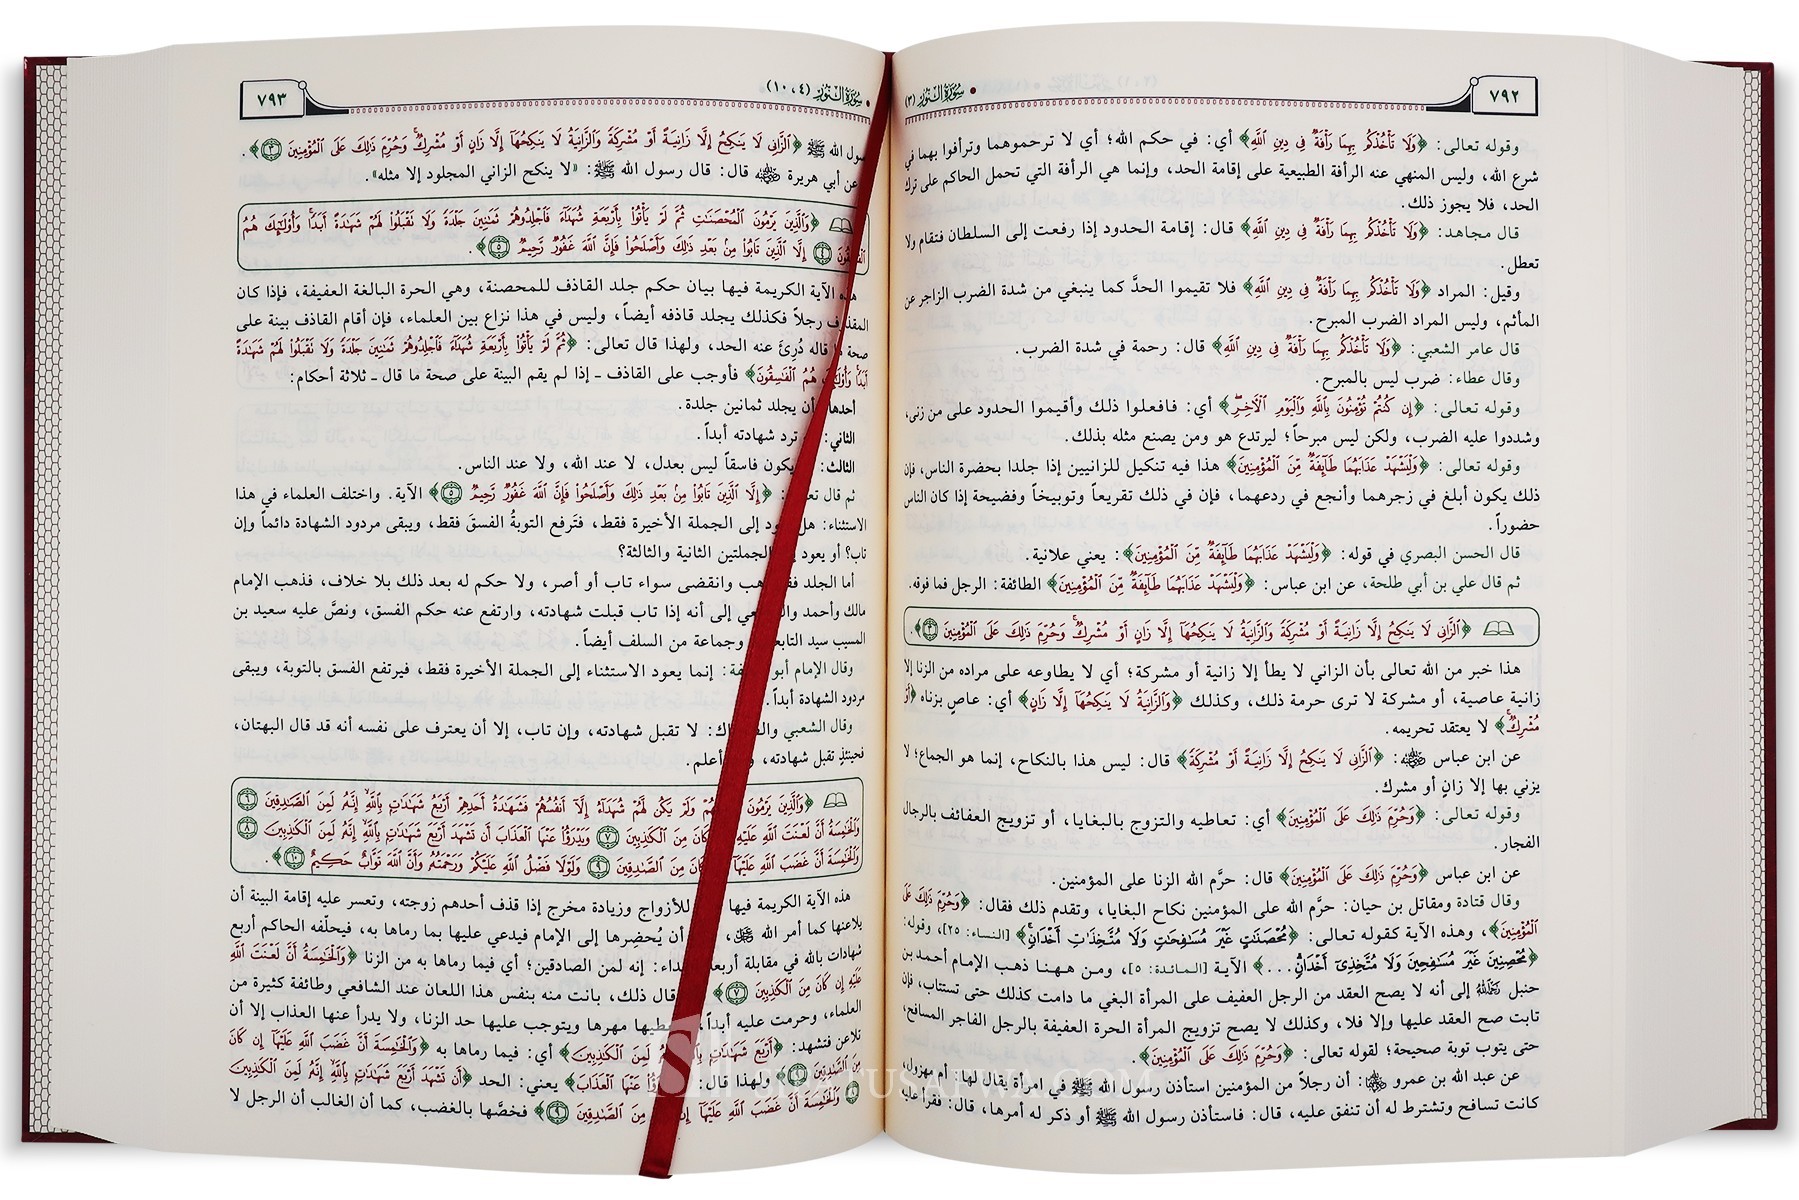 ٧٩٢
سُورَةُ النُّورِ (٣)
وقوله تعالى: ﴿وَلَا تَأْخُذْكُم بِهِمَا رَأْفَةٌ فِي دِينِ ٱللَّهِ﴾ أي: في حكم الله؛ أي لا ترحموهما وترأفوا بهما في
شرع الله، وليس المنهي عنه الرأفة الطبيعية على إقامة الحد، وإنما هي الرأفة التي تحمل الحاكم على ترك
الحد، فلا يجوز ذلك.
قال مجاهد: ﴿وَلَا تَأْخُذْكُم بِهِمَا رَأْفَةٌ فِي دِينِ ٱللَّهِ﴾ قال: إقامة الحدود إذا رفعت إلى السلطان فتقام ولا
تعطل.
وقيل: المراد ﴿وَلَا تَأْخُذْكُم بِهِمَا رَأْفَةٌ فِي دِينِ ٱللَّهِ﴾ فلا تقيموا الحدَّ كما ينبغي من شدة الضرب الزاجر عن
المأثم، وليس المراد الضرب المبرح.
قال عامر الشعبي: ﴿وَلَا تَأْخُذْكُم بِهِمَا رَأْفَةٌ فِي دِينِ ٱللَّهِ﴾ قال: رحمة في شدة الضرب.
وقال عطاء: ضرب ليس بالمبرح.
وقوله تعالى: ﴿إِن كُنتُمْ تُؤْمِنُونَ بِٱللَّهِ وَٱلْيَوْمِ ٱلْآخِرِ﴾ أي: فافعلوا ذلك وأقيموا الحدود على من زنى،
وشددوا عليه الضرب، ولكن ليس مبرحاً؛ ليرتدع هو ومن يصنع مثله بذلك.
وقوله تعالى: ﴿وَلْيَشْهَدْ عَذَابَهُمَا طَآئِفَةٌ مِّنَ ٱلْمُؤْمِنِينَ﴾ هذا فيه تنكيل للزانيين إذا جلدا بحضرة الناس، فإن
ذلك يكون أبلغ في زجرهما وأنجع في ردعهما، فإن في ذلك تقريعاً وتوبيخاً وفضيحة إذا كان الناس
حضوراً.
قال الحسن البصري في قوله: ﴿وَلْيَشْهَدْ عَذَابَهُمَا طَآئِفَةٌ مِّنَ ٱلْمُؤْمِنِينَ﴾: يعني علانية.
ثم قال علي بن أبي طلحة، عن ابن عباس: ﴿وَلْيَشْهَدْ عَذَابَهُمَا طَآئِفَةٌ مِّنَ ٱلْمُؤْمِنِينَ﴾ الطائفة: الرجل فما فوقه.
﴿ٱلزَّانِي لَا يَنكِحُ إِلَّا زَانِيَةً أَوْ مُشْرِكَةً وَٱلزَّانِيَةُ لَا يَنكِحُهَآ إِلَّا زَانٍ أَوْ مُشْرِكٌ ۚ وَحُرِّمَ ذَٰلِكَ عَلَى ٱلْمُؤْمِنِينَ ٣﴾.
هذا خبر من الله تعالى بأن الزاني لا يطأ إلا زانية أو مشركة؛ أي لا يطاوعه على مراده من الزنا إلا
زانية عاصية، أو مشركة لا ترى حرمة ذلك، وكذلك ﴿وَٱلزَّانِيَةُ لَا يَنكِحُهَآ إِلَّا زَانٍ﴾ أي: عاصٍ بزناه ﴿أَوْ
مُشْرِكٌ﴾ لا يعتقد تحريمه.
عن ابن عباس ﵁: ﴿ٱلزَّانِي لَا يَنكِحُ إِلَّا زَانِيَةً أَوْ مُشْرِكَةً﴾ قال: ليس هذا بالنكاح، إنما هو الجماع؛ لا
يزني بها إلا زانٍ أو مشرك.
وقوله تعالى: ﴿وَحُرِّمَ ذَٰلِكَ عَلَى ٱلْمُؤْمِنِينَ﴾ أي: تعاطيه والتزوج بالبغايا، أو تزويج العفائف بالرجال
الفجار.
عن ابن عباس ﴿وَحُرِّمَ ذَٰلِكَ عَلَى ٱلْمُؤْمِنِينَ﴾ قال: حرَّم الله الزنا على المؤمنين.
وقال قتادة ومقاتل بن حيان: حرَّم الله على المؤمنين نكاح البغايا، وتقدم ذلك فقال: ﴿وَحُرِّمَ ذَٰلِكَ عَلَى
ٱلْمُؤْمِنِينَ﴾، وهذه الآية كقوله تعالى: ﴿مُحْصَنَٰتٍ غَيْرَ مُسَٰفِحَٰتٍ وَلَا مُتَّخِذَٰتِ أَخْدَانٍ﴾ [النساء: ٢٥]، وقوله:
﴿مُحْصِنِينَ غَيْرَ مُسَٰفِحِينَ وَلَا مُتَّخِذِيٓ أَخْدَانٍ...﴾ الآية [المائدة: ٥]، ومن ههنا ذهب الإمام أحمد بن
حنبل ﵀ إلى أنه لا يصح العقد من الرجل العفيف على المرأة البغي ما دامت كذلك حتى تستتاب، فإن
تابت صح العقد عليها وإلا فلا، وكذلك لا يصح تزويج المرأة الحرة العفيفة بالرجل الفاجر المسافح،
حتى يتوب توبة صحيحة؛ لقوله تعالى: ﴿وَحُرِّمَ ذَٰلِكَ عَلَى ٱلْمُؤْمِنِينَ﴾.
عن عبد الله بن عمرو ﵄: أن رجلاً من المؤمنين استأذن رسول الله ﷺ في امرأة يقال لها: أم مهزول،
كانت تسافح وتشترط له أن تنفق عليه، قال: فاستأذن رسول الله ﷺ أو ذكر له أمرها، قال: فقرأ عليه
٧٩٣
سُورَةُ النُّورِ (٤، ١٠)
رسول الله ﷺ ﴿ٱلزَّانِي لَا يَنكِحُ إِلَّا زَانِيَةً أَوْ مُشْرِكَةً وَٱلزَّانِيَةُ لَا يَنكِحُهَآ إِلَّا زَانٍ أَوْ مُشْرِكٌ ۚ وَحُرِّمَ ذَٰلِكَ عَلَى ٱلْمُؤْمِنِينَ ٣﴾.
عن أبي هريرة ﵁ قال: قال رسول الله ﷺ: «لا ينكح الزاني المجلود إلا مثله».
﴿وَٱلَّذِينَ يَرْمُونَ ٱلْمُحْصَنَٰتِ ثُمَّ لَمْ يَأْتُوا۟ بِأَرْبَعَةِ شُهَدَآءَ فَٱجْلِدُوهُمْ ثَمَٰنِينَ جَلْدَةً وَلَا تَقْبَلُوا۟ لَهُمْ شَهَٰدَةً أَبَدًا ۚ وَأُو۟لَٰٓئِكَ هُمُ
ٱلْفَٰسِقُونَ ٤ إِلَّا ٱلَّذِينَ تَابُوا۟ مِنۢ بَعْدِ ذَٰلِكَ وَأَصْلَحُوا۟ فَإِنَّ ٱللَّهَ غَفُورٌ رَّحِيمٌ ٥﴾.
هذه الآية الكريمة فيها بيان حكم جلد القاذف للمحصنة، وهي الحرة البالغة العفيفة، فإذا كان
المقذوف رجلاً فكذلك يجلد قاذفه أيضاً، وليس في هذا نزاع بين العلماء، فإن أقام القاذف بينة على
صحة ما قاله دُرِئَ عنه الحد، ولهذا قال تعالى: ﴿ثُمَّ لَمْ يَأْتُوا۟ بِأَرْبَعَةِ شُهَدَآءَ فَٱجْلِدُوهُمْ ثَمَٰنِينَ جَلْدَةً وَلَا تَقْبَلُوا۟ لَهُمْ شَهَٰدَةً
أَبَدًا وَأُو۟لَٰٓئِكَ هُمُ ٱلْفَٰسِقُونَ﴾ فأوجب على القاذف ـ إذا لم يقم البينة على صحة ما قال ـ ثلاثة أحكام:
أحدها: أن يجلد ثمانين جلدة.
الثاني: ترد شهادته أبداً.
الثالث: يكون فاسقاً ليس بعدل، لا عند الله، ولا عند الناس.
ثم قال تعالى: ﴿إِلَّا ٱلَّذِينَ تَابُوا۟ مِنۢ بَعْدِ ذَٰلِكَ وَأَصْلَحُوا۟ فَإِنَّ ٱللَّهَ غَفُورٌ رَّحِيمٌ ٥﴾ الآية. واختلف العلماء في هذا
الاستثناء: هل يعود إلى الجملة الأخيرة فقط، فترفع التوبةُ الفسقَ فقط، ويبقى مردود الشهادة دائماً وإن
تاب؟ أو يعود إلى الجملتين الثانية والثالثة؟
أما الجلد فقد ذهب وانقضى سواء تاب أو أصر، ولا حكم له بعد ذلك بلا خلاف، فذهب الإمام
مالك وأحمد والشافعي إلى أنه إذا تاب قبلت شهادته، وارتفع عنه حكم الفسق، ونصَّ عليه سعيد بن
المسيب سيد التابعين وجماعة من السلف أيضاً.
وقال الإمام أبو حنيفة: إنما يعود الاستثناء إلى الجملة الأخيرة فقط، فيرتفع الفسق بالتوبة، ويبقى
مردود الشهادة أبداً.
وقال الشعبي والضحاك: لا تقبل شهادته، وإن تاب، إلا أن يعترف على نفسه أنه قد قال البهتان،
فحينئذٍ تقبل شهادته، أعلم.
﴿وَٱلَّذِينَ يَرْمُونَ وَلَمْ يَكُن لَّهُمْ شُهَدَآءُ إِلَّآ أَنفُسُهُمْ فَشَهَٰدَةُ أَحَدِهِمْ أَرْبَعُ شَهَٰدَٰتٍۭ بِٱللَّهِ ۙ إِنَّهُۥ لَمِنَ ٱلصَّٰدِقِينَ ٦
وَٱلْخَٰمِسَةُ أَنَّ لَعْنَتَ ٱللَّهِ عَلَيْهِ كَانَ مِنَ ٱلْكَٰذِبِينَ ٧ وَيَدْرَؤُا۟ عَنْهَا ٱلْعَذَابَ أَن تَشْهَدَ أَرْبَعَ شَهَٰدَٰتٍۭ بِٱللَّهِ ۙ إِنَّهُۥ لَمِنَ ٱلْكَٰذِبِينَ ٨
وَٱلْخَٰمِسَةَ أَنَّ غَضَبَ ٱللَّهِ عَلَيْهَآ كَانَ مِنَ ٱلصَّٰدِقِينَ ٩ وَلَوْلَا فَضْلُ ٱللَّهِ عَلَيْكُمْ وَرَحْمَتُهُۥ وَأَنَّ ٱللَّهَ تَوَّابٌ حَكِيمٌ ١٠﴾.
هذه الآية الكريمة فيها للأزواج وزيادة مخرج إذا قذف أحدهم زوجته، وتعسر عليه إقامة البينة أن
يلاعنها كما أمر الله ﷻ، أن يُحضِرها إلى الإمام فيدعي عليها بما رماها به، فيحلّفه الحاكم أربع
شهادات بالله في مقابلة أربعة شهداء: إنه لمن الصادقين؛ أي فيما رماها به من الزنا ﴿وَٱلْخَٰمِسَةُ أَنَّ لَعْنَتَ ٱللَّهِ
عَلَيْهِ إِن كَانَ مِنَ ٱلْكَٰذِبِينَ ٧﴾ قال ذلك، بانت منه بنفس هذا اللعان عند الشافعي وطائفة كثيرة من
العلماء، وحرمت عليه أبداً، ويعطيها مهرها ويتوجب عليها حد الزنا، ولا يدرأ عنها العذاب إلا أن
تلاعن فتشهد: ﴿أَرْبَعَ شَهَٰدَٰتٍۭ بِٱللَّهِ لَمِنَ ٱلْكَٰذِبِينَ﴾ أي: فيما رماها به ﴿وَٱلْخَٰمِسَةَ أَنَّ غَضَبَ ٱللَّهِ عَلَيْهَآ إِن كَانَ
مِنَ ٱلصَّٰدِقِينَ﴾ ولهذا قال: ﴿وَيَدْرَؤُا۟ عَنْهَا ٱلْعَذَابَ﴾ يعني: الحد ﴿أَن تَشْهَدَ أَرْبَعَ شَهَٰدَٰتٍۭ بِٱللَّهِ إِنَّهُۥ لَمِنَ ٱلْكَٰذِبِينَ
٨ وَٱلْخَٰمِسَةَ أَنَّ غَضَبَ ٱللَّهِ عَلَيْهَآ إِن مِنَ ٱلصَّٰدِقِينَ ٩﴾ فخصَّها بالغضب، كما أن الغالب أن الرجل لا